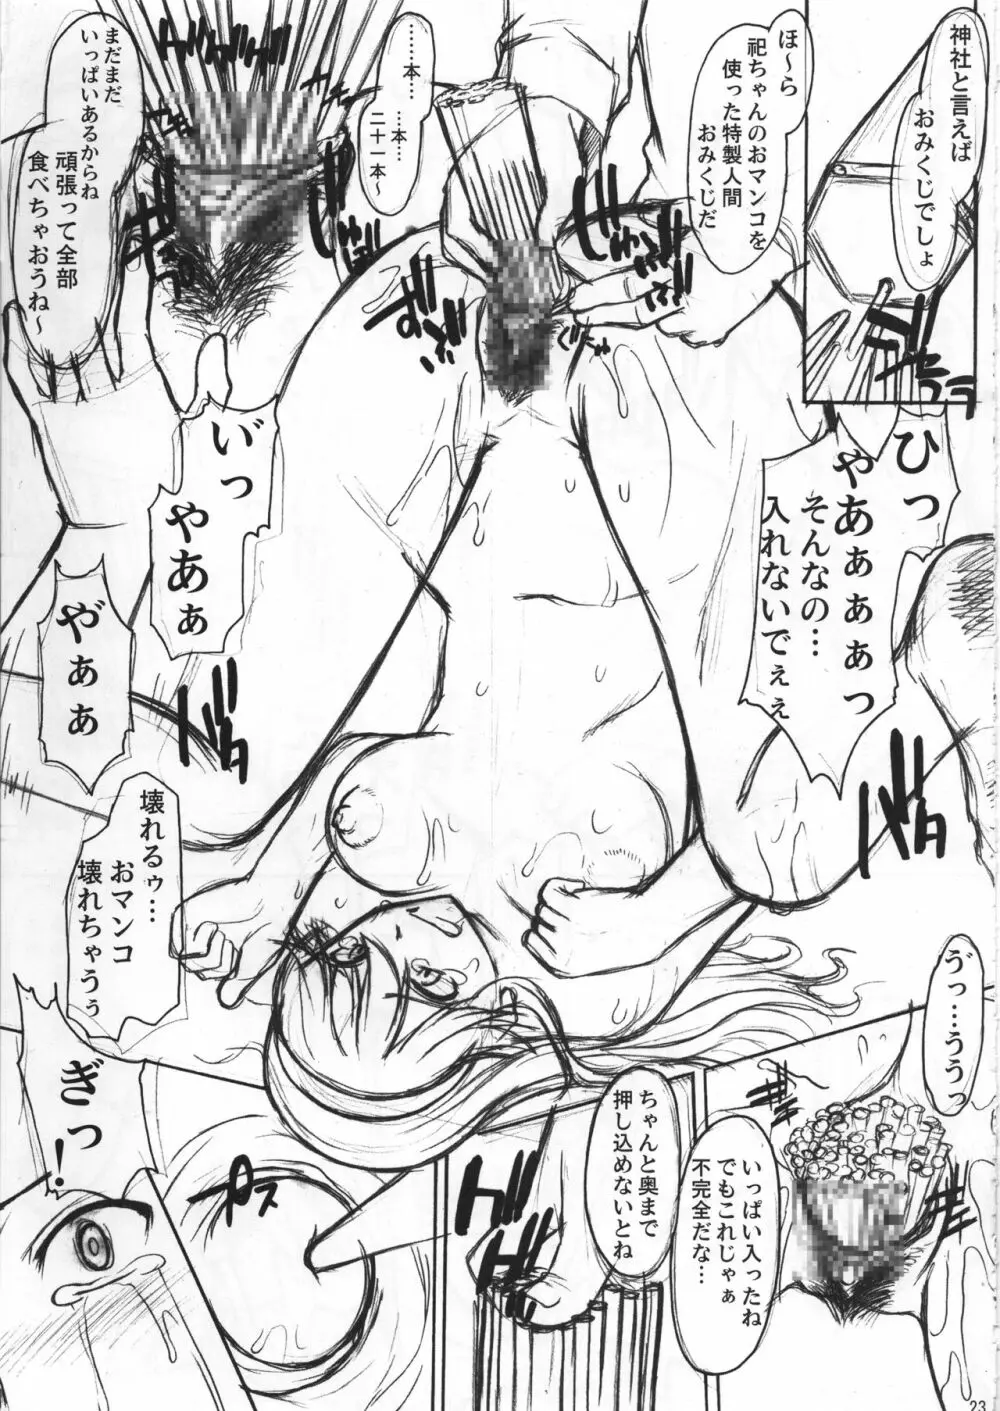 神社と言えば
おみくじでしょ
ほ～ら
祀ちゃんのおマンコを
使った特製人間
おみくじだ
……本……
…本…
二十一本～
まだまだ
いっぱいあるからね
頑張って全部
食べちゃおうね～
ひっ
やあぁぁぁっ
そんなの…
入れないでぇぇ
い゛っ
やあぁ
や゛ぁぁ
壊れるゥ…
おマンコ
壊れちゃうぅ
ゔっ…ううっ
いっぱい入ったね
でもこれじゃぁ
不完全だな…
ちゃんと奥まで
押し込めないとね
ぎっ！
23